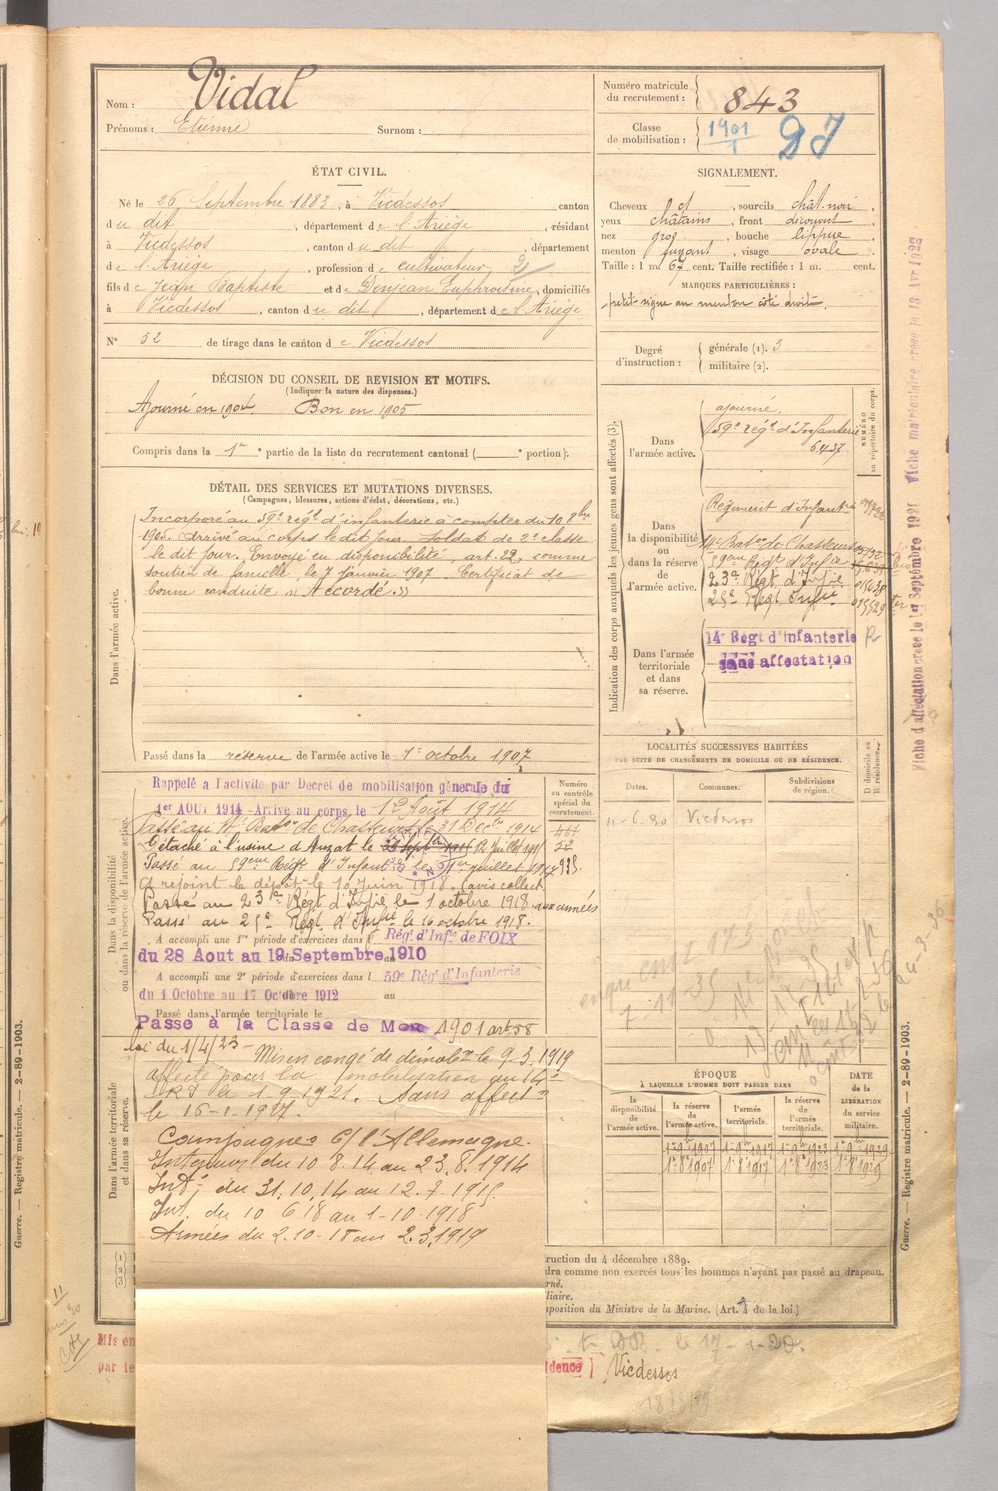 Nom : Vidal
Prénoms : Etienne Surnom :
Numéro matricule du recrutement : 843
Classe de mobilisation : 1901
ÉTAT CIVIL.
Né le 26 Septembre 1883, à Vicdessos canton
du dit, département de l'Ariège, résidant
à Vicdessos, canton du dit, département
de l'Ariège, profession de cultivateur 2
fils de Jean Baptiste et de Denjean Euphrosine, domiciliés
à Vicdessos, canton du dit, département de l'Ariège
N° 52 de tirage dans le canton de Vicdessos
SIGNALEMENT.
Cheveux ct, sourcils chât-noir,
yeux chatains, front découvert
nez gros, bouche lippue,
menton fuyant, visage ovale
Taille : 1 m. 67 cent. Taille rectifiée : 1 m. cent.
MARQUES PARTICULIÈRES :
petit signe au menton côté droit.
Degré d'instruction : générale (1). 3
militaire (2).
DÉCISION DU CONSEIL DE REVISION ET MOTIFS.
(Indiquer la nature des dispenses.)
Ajourné en 1904 Bon en 1905
Compris dans la 1re partie de la liste du recrutement cantonal ( ° portion);
DÉTAIL DES SERVICES ET MUTATIONS DIVERSES.
(Campagnes, blessures, actions d'éclat, décorations, etc.)
Dans l'armée active.
Incorporé au 59e régt d'infanterie à compter du 10 8bre
1905. Arrivé au corps le dit jour. Soldat de 2e classe
le dit jour. Envoyé en disponibilité, art. 22, comme
soutien de famille, le 7 Janvier 1907. Certificat de
bonne conduite "Accordé."
Passé dans la réserve de l'armée active le 1er octobre 1907
Indication des corps auxquels les jeunes gens sont affectés (3).
NUMÉRO au répertoire du corps.
Dans l'armée active.
ajourné
59e Régt d'Infanterie
6437
Dans la disponibilité ou dans la réserve de l'armée active.
Régiment d'Infantrie
Bat.on de Chasseurs
59eme Régt d'Infie
23e Régt d'Infie 015038
25e Régt Infie 015529
Dans l'armée territoriale et dans sa réserve.
14e Régt d'infanterie
sans affectation
Fiche d'affectation créée le 1er Septembre 1921
Fiche matriculaire créée le 18 Avr 1928
LOCALITÉS SUCCESSIVES HABITÉES
PAR SUITE DE CHANGEMENTS DE DOMICILE OU DE RÉSIDENCE.
Dates. Communes. Subdivisions de région. D domicile ou R résidence.
11-6.30 Vicdessos
Dans la disponibilité ou dans la réserve de l'armée active.
Numéro au contrôle spécial du recrutement.
Rappelé à l'activité par Décret de mobilisation générale du
1er AOUT 1914 - Arrivé au corps, le 12 Août 1914
Passé au Bat.on de Chasseurs le 31 Décbre 1914
Détaché à l'usine d'Auzat le 12 Juillet 1915
Passé au 59eme Régt d'Infantrie le 1er juillet 1917
A rejoint le dépôt le 10 juin 1918. (avis collect
Passé au 23e Régt d'Infie le 1 octobre 1918. aux armées
Passé au 25e Régt d'Infie le 16 octobre 1918.
A accompli une 1re période d'exercices dans l Régt d'Infie de FOIX
du 28 Aout au 19 Septembre 1910
A accompli une 2e période d'exercices dans l 59e Régt d'Infanterie
du 1 Octobre au 17 Octobre 1912
Passé dans l'armée territoriale le
Passé à la Classe de Mob 1901 art 58
loi du 1/4/23 - Mis en congé de démobon le 9-3.1919
Dans l'armée territoriale et dans sa réserve.
affecté pour la mobilisation au 14e
R.I le 1-9.1921. Sans affecton
le 16-1-1927.
Campagnes C/ l'Allemagne.
Intérieur du 10 8.14 au 23.8.1914
Intr du 31.10.14 au 12.7.1915
Int. du 10 6 18 au 1-10-1918
Armées du 2.10-18 au 2.3.1919
ÉPOQUE
À LAQUELLE L'HOMME DOIT PASSER DANS
la disponibilité de l'armée active.
la réserve de l'armée active.
l'armée territoriale.
la réserve de l'armée territoriale.
DATE de la LIBÉRATION du service militaire.
1er 8 1907 1er 8 1917 1er 8 1923 1er 8 1929
ruction du 4 décembre 1889.
dra comme non exercés tous les hommes n'ayant pas passé au drapeau.
rné.
iliaire.
sposition du Ministre de la Marine. (Art. 4 de la loi.)
le 17-1-20.
Mis en
par le
dence Vicdessos
Guerre. — Registre matricule. — 2-89-1903.
Guerre. — Registre matricule. — 2-89-1903.